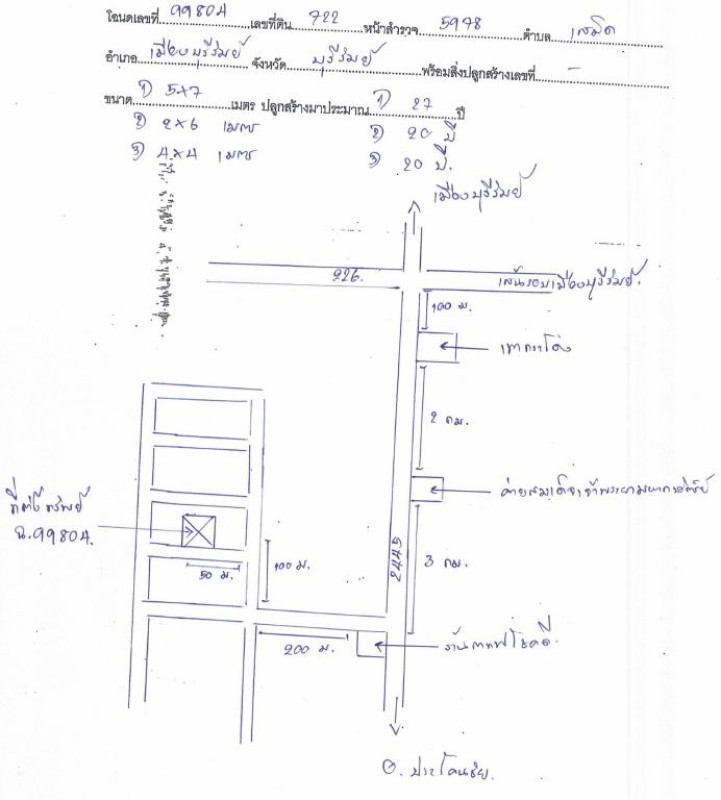 โฉนดเลขที่ 99804 เลขที่ดิน 722 หน้าสำรวจ 5978 ตำบล เสม็ด
อำเภอ เมืองบุรีรัมย์ จังหวัด บุรีรัมย์ พร้อมสิ่งปลูกสร้างเลขที่ -
ขนาด 1) 5×7 เมตร ปลูกสร้างมาประมาณ 1) 27 ปี
2) 2×6 เมตร 2) 20 ปี
3) 4×4 เมตร 3) 20 ปี.
เมืองบุรีรัมย์
226.
เส้นรอบเมืองบุรีรัมย์.
100 ม.
เขากระโดง
2 กม.
ค่ายสมเด็จเจ้าพระยามหากษัตริย์ศึก
ที่ตั้งทรัพย์
ฉ.99804.
50 ม.
100 ม.
2445
3 กม.
200 ม.
ร้านกาแฟโชคดี.
อ. ประโคนชัย.